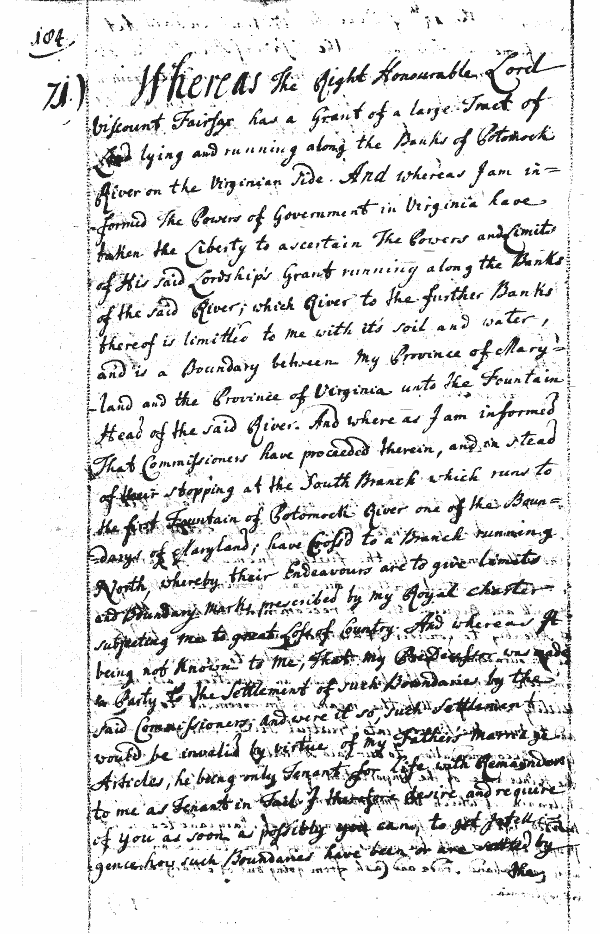 184
71.) Whereas The Right Honourable Lord
Viscount Fairfax has a Grant of a large Tract of
Land lying and running along the Banks of Potomock
River on the Virginian Side. And whereas I am in=
=formed The Powers of Government in Virginia have
taken the Liberty to ascertain The Powers and Limits
of His said Lordship's Grant running along the Banks
of the said River; which River to the further Banks
thereof is limitted to me with its soil and water,
and is a Boundary between my Province of Mary=
=land and the Province of Virginia unto the Fountain
Head of the said River. And where as I am informed
That Commissioners have proceeded therein, and in stead
of their stopping at the South Branch which runs to
the first Fountain of Potomock River one of the Boun=
=darys of Maryland; have Cross'd to a Branch running
North, whereby their Endeavours are to give limits
and Boundary marks prescribed by my Royal Charter
subjecting me to great Loss of Country. And whereas It
being not Known to me, That my Predecessor was made
a Party To the Settlement of such Boundaries by the
said Commissioners, and were it so, such Settlement
would be invalid by virtue of my Fathers Marriage
Articles, he being only Tenant for life with Remainders
to me as Tenant in Tail I therefore desire and require
of you as soon as possibly you can, to get Intelli=
gence how such Boundaries have been or are settled by
the